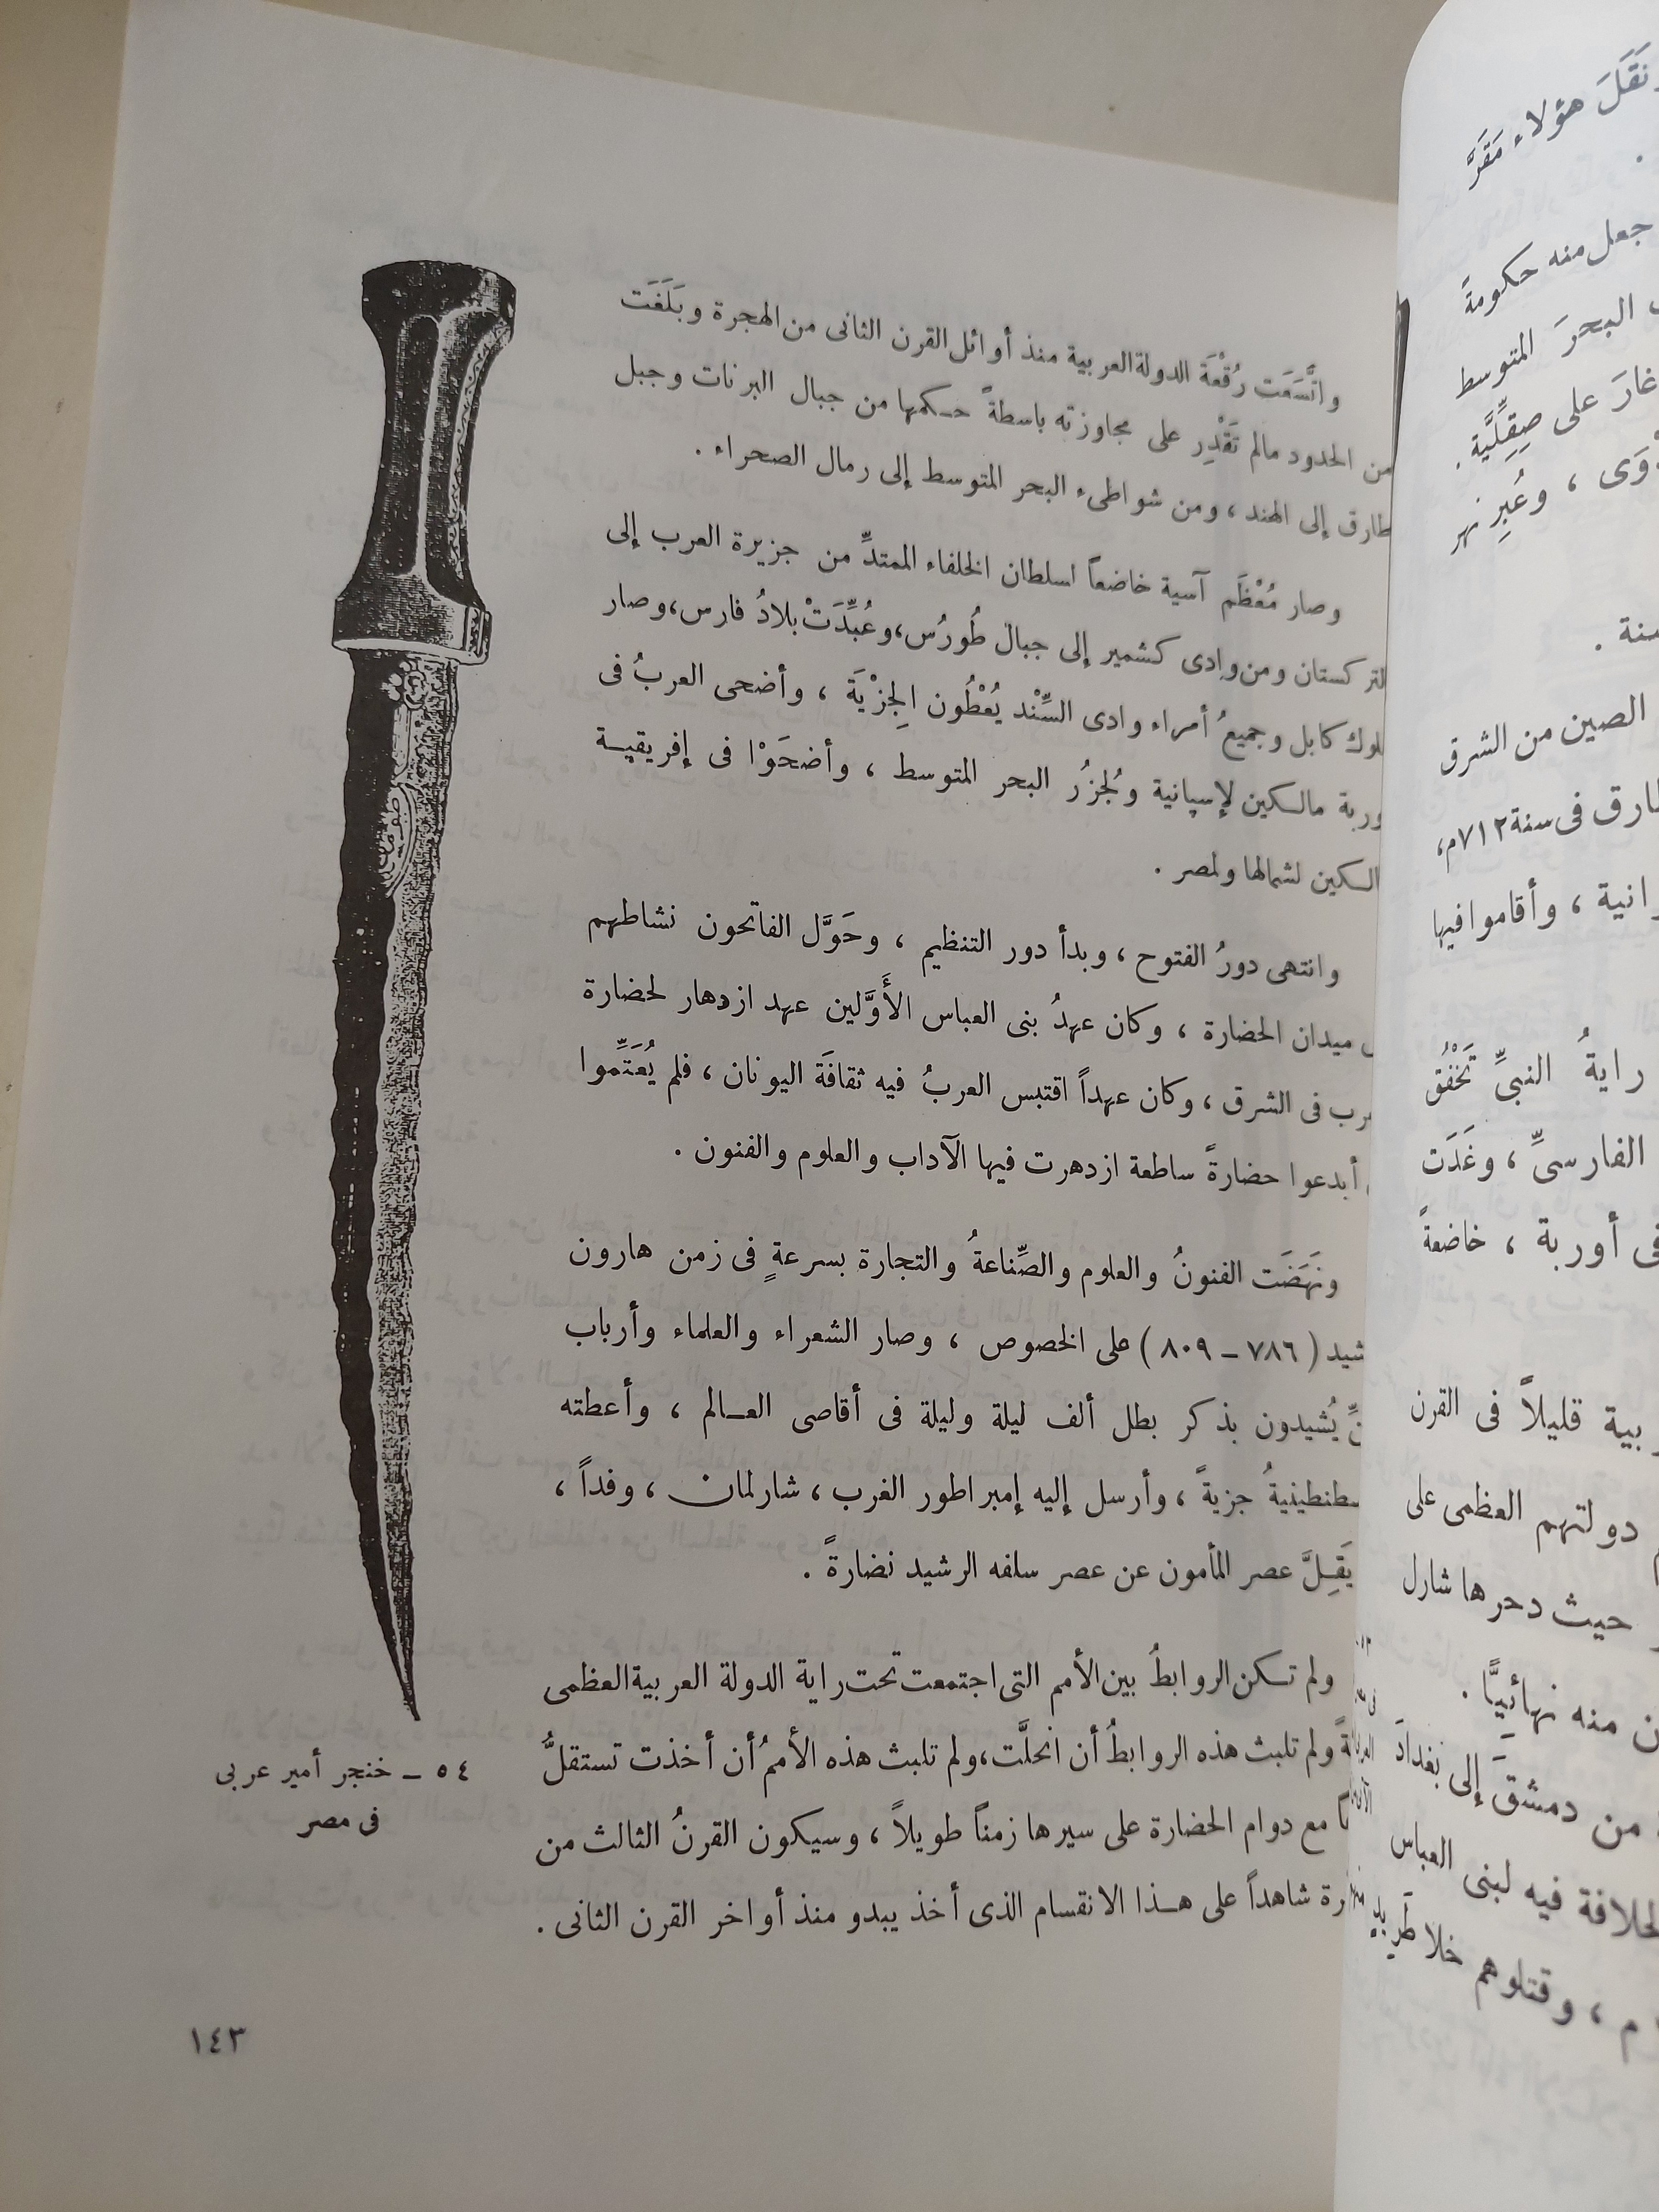 واتَّسَعَت رُقْعَة الدولة العربية منذ أوائل القرن الثانى من الهجرة وبَلَغَت
من الحدود مالم تَقْدِر على مجاوزته باسطةً حكمها من جبال البرنات وجبل
طارق إلى الهند ، ومن شواطىء البحر المتوسط إلى رمال الصحراء .
وصار مُعْظَم آسية خاضعاً لسلطان الخلفاء الممتدِّ من جزيرة العرب إلى
التركستان ومن وادى كشمير إلى جبال طُورُس، وعُبِّدَتْ بلادُ فارس، وصار
كابل وجميعُ أمراء وادى السِّنْد يُعْطُون الجِزْيَة ، وأضحى العربُ فى
مالكين لإسپانية ولجُزُر البحر المتوسط ، وأضحَوْا فى إفريقية
لشمالها ولمصر .
وانتهى دورُ الفتوح ، وبدأ دور التنظيم ، وحَوَّل الفاتحون نشاطهم
ميدان الحضارة ، وكان عهدُ بنى العباس الأَوَّلين عهد ازدهار لحضارة
فى الشرق ، وكان عهداً اقتبس العربُ فيه ثقافَة اليونان ، فلم يُعَتِّموا
أبدعوا حضارةً ساطعة ازدهرت فيها الآداب والعلوم والفنون .
ونَهَضَت الفنونُ والعلوم والصِّناعةُ والتجارة بسرعةٍ فى زمن هارون
( ٧٨٦ – ٨٠٩ ) على الخصوص ، وصار الشعراء والعلماء وأرباب
يُشيدون بذكر بطل ألف ليلة وليلة فى أقاصى العالم ، وأعطته
جزيةً ، وأرسل إليه إمبراطور الغرب ، شارلمان ، وفداً ،
يَقِلَّ عصر المأمون عن عصر سلفه الرشيد نضارةً .
ولم تكن الروابطُ بين الأمم التى اجتمعت تحت راية الدولة العربية العظمى
ولم تلبث هذه الروابطُ أن انحلَّت، ولم تلبث هذه الأممُ أن أخذت تستقلُّ
مع دوام الحضارة على سيرها زمناً طويلاً ، وسيكون القرنُ الثالث من
شاهداً على هذا الانقسام الذى أخذ يبدو منذ أواخر القرن الثانى .
٥٤ – خنجر أمير عربى
فى مصر
١٤٣
نَقَلَ هؤلاء مَقَرَّ
جعل منه حكومةً
البحرَ المتوسط
على صِقِلِّيَّة .
، وعُبِر نهر
الصين من الشرق
فى سنة ٧١٢م،
، وأقاموا فيها
رايةُ النبىِّ تَخْفُق
الفارسىِّ ، وغَدَت
أوربة ، خاضعةً
قليلاً فى القرن
دولتهم العظمى على
حيث دحرها شارل
منه نهائِيًّا .
من دمشقَ إلى بغدادَ
فيه لبنى العباس
م ، وقتلوهم خلا